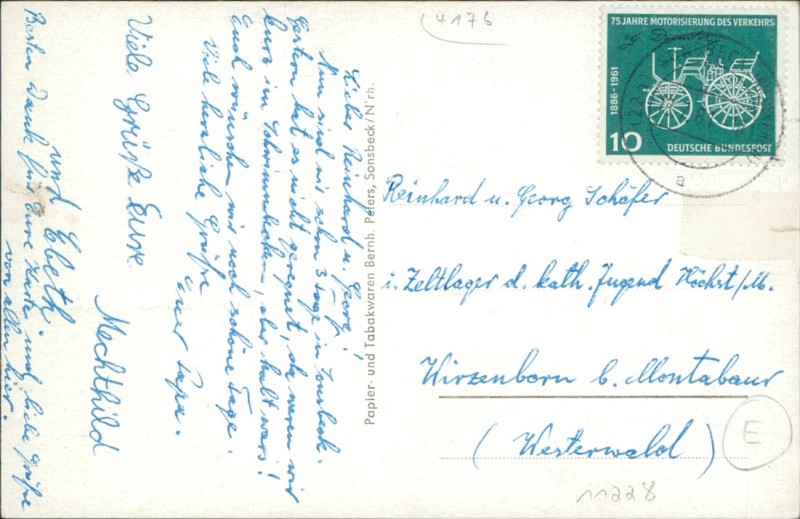 4176
75 JAHRE MOTORISIERUNG DES VERKEHRS
G. Daimler
1886-1961
10
DEUTSCHE BUNDESPOST
a
Lieber Reinhard u. Georg!
Nun sind wir schon 3 Tage in Sonsbeck.
Gestern hat es nicht geregnet, da waren wir
kurz im Schwimmbecken, aber kalt wars!
Euch wünschen wir noch schöne Tage.
Viele herzliche Grüße
euer Papa.
Viele Grüße Eure
Mechthild
und Elbeth.
Besten Dank für Eure Karte und liebe Grüße
von allen hier.
Papier- und Tabakwaren Bernh. Peters, Sonsbeck/N'rh.
Reinhard u. Georg Schäfer
i. Zeltlager d. kath. Jugend Höchst/M.
Wirzenborn b. Montabaur
(Westerwald)
E
11228